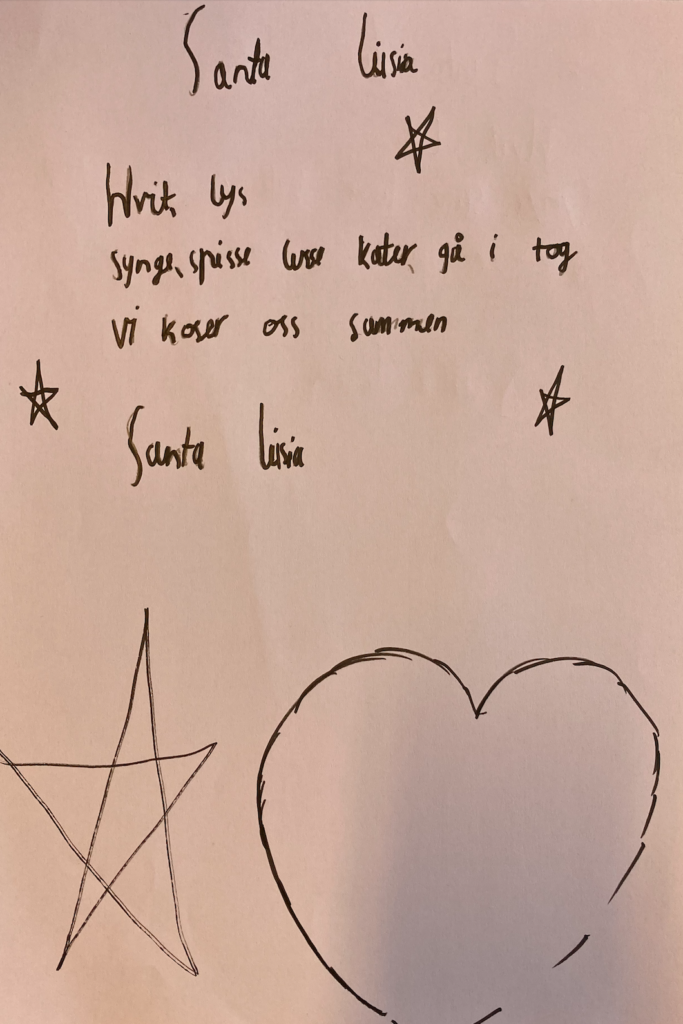 Santa Lusia
Hvit, lys
synge, spisse lusse kater, gå i tog
Vi koser oss sammen
Santa Lusia